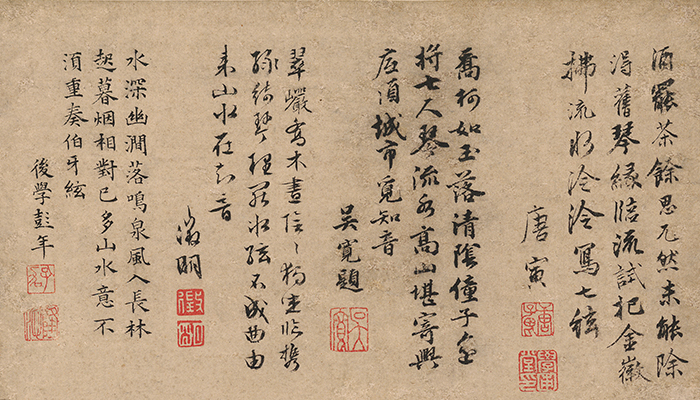 酒罷茶餘思兀然未能除
得舊琴緣臨流試把金徽
拂流水泠泠寫七絃
唐寅
喬柯如玉落清陰僮子
將七尺琴流水高山堪寄興
底須城市覓知音
吳寬題
翠巘喬木晝陰〻獨坐携
綠綺琴理罷冰絃不成曲由
來山水在知音
徵明
水深幽澗落鳴泉風入長林
起暮烟相對已多山水意不
須重奏伯牙絃
後學彭年